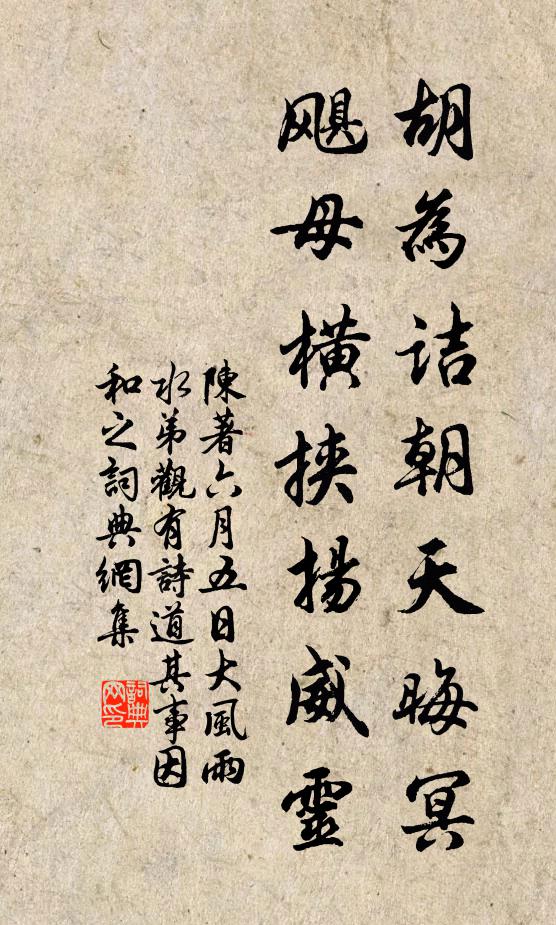 胡為詰朝天晦冥
颶母橫挾揚威靈
陳著六月五日大風雨
水弟觀有詩道其事因
和之詞典網集
詞典
网印